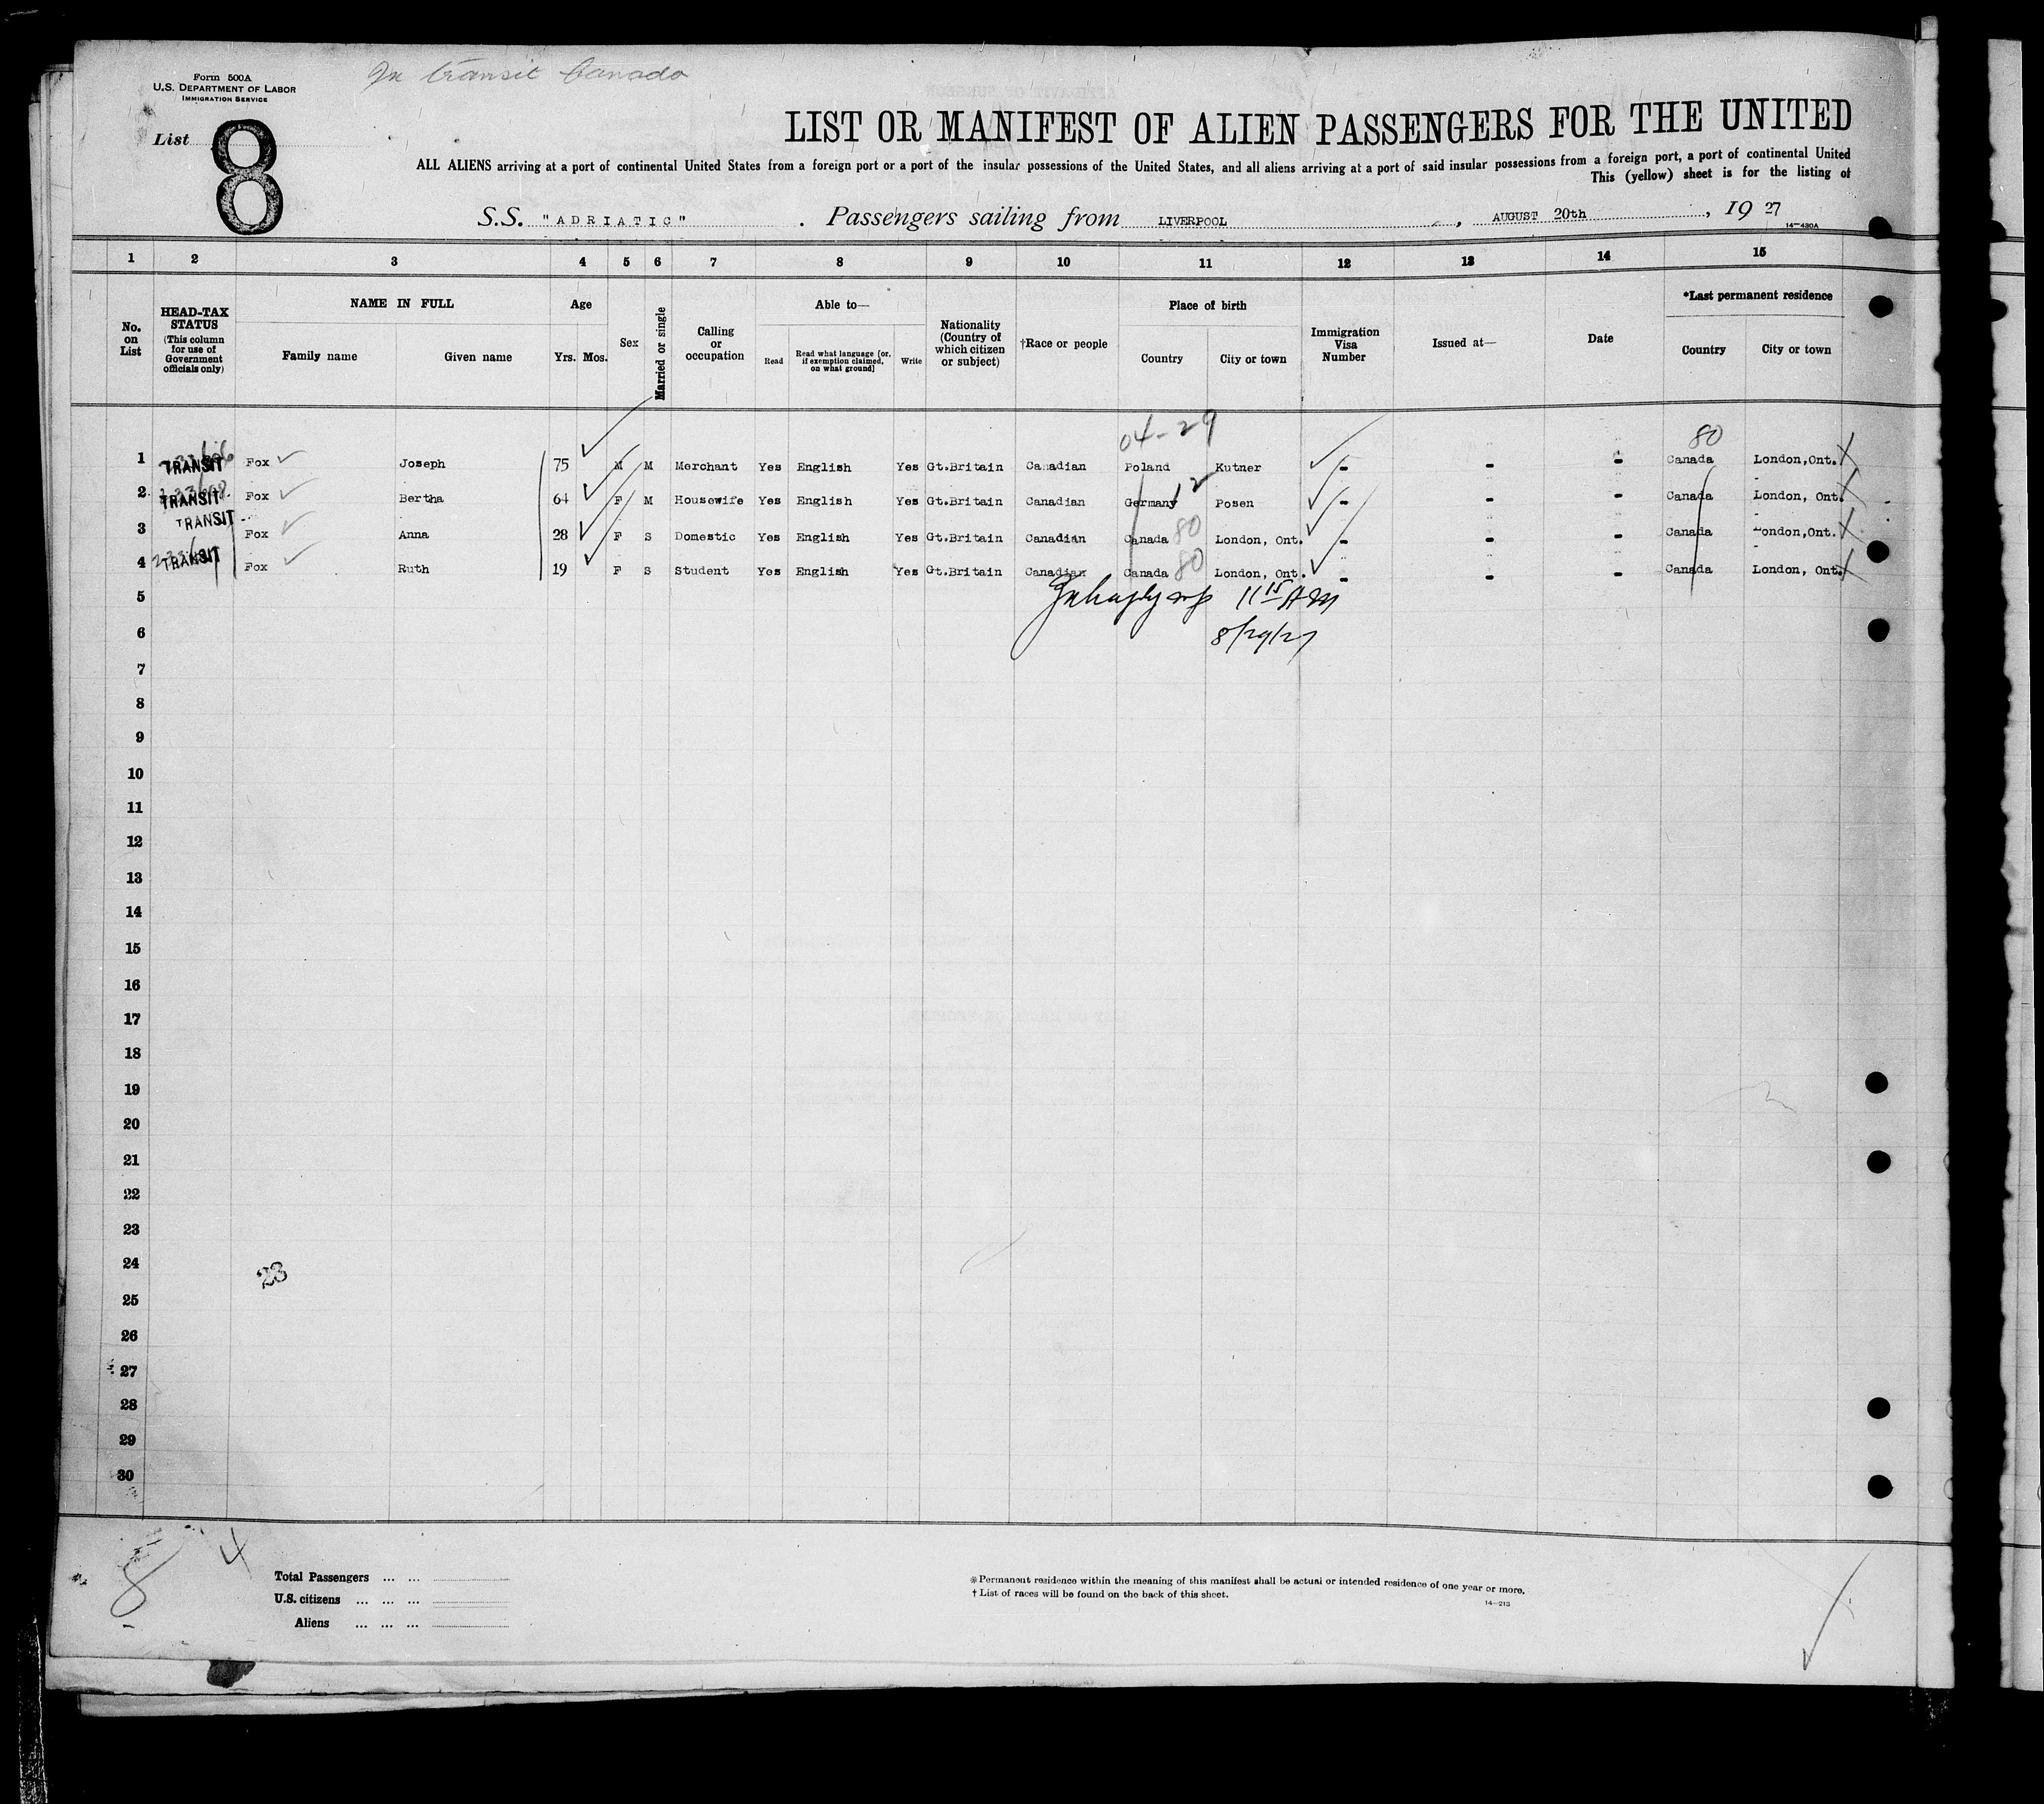 Form 500A
U.S. DEPARTMENT OF LABOR
IMMIGRATION SERVICE
In transit Canada
List 8
LIST OR MANIFEST OF ALIEN PASSENGERS FOR THE UNITED
ALL ALIENS arriving at a port of continental United States from a foreign port or a port of the insular possessions of the United States, and all aliens arriving at a port of said insular possessions from a foreign port, a port of continental United
This (yellow) sheet is for the listing of
S.S. "ADRIATIC". Passengers sailing from LIVERPOOL, AUGUST 20th, 19 27
14—430A
1 2 3 4 5 6 7 8 9 10 11 12 13 14 15
No. on List
HEAD-TAX STATUS (This column for use of Government officials only)
NAME IN FULL
Family name Given name
Age
Yrs. Mos.
Sex
Married or single
Calling or occupation
Able to—
Read
Read what language [or, if exemption claimed, on what ground]
Write
Nationality (Country of which citizen or subject)
†Race or people
Place of birth
Country City or town
Immigration Visa Number
Issued at—
Date
*Last permanent residence
Country City or town
04-29
80
1 TRANSIT Fox Joseph 75 M M Merchant Yes English Yes Gt.Britain Canadian Poland Kutner - - - Canada London,Ont.
2 TRANSIT Fox Bertha 64 F M Housewife Yes English Yes Gt.Britain Canadian Germany 12 Posen - - - Canada London, Ont.
3 TRANSIT Fox Anna 28 F S Domestic Yes English Yes Gt.Britain Canadian Canada 80 London, Ont. - - - Canada London,Ont.
4 TRANSIT Fox Ruth 19 F S Student Yes English Yes Gt.Britain Canadian Canada 80 London, Ont. - - - Canada London, Ont.
5
11 15 AM
6
8/29/27
7
8
9
10
11
12
13
14
15
16
17
18
19
20
21
22
23
24
23
25
26
27
28
29
30
8 4
Total Passengers ... ...
U.S. citizens ... ... ...
Aliens ... ... ...
*Permanent residence within the meaning of this manifest shall be actual or intended residence of one year or more.
† List of races will be found on the back of this sheet.
14—213